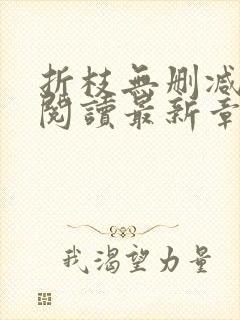 折枝無刪减
閱讀最新章
我渴望力量